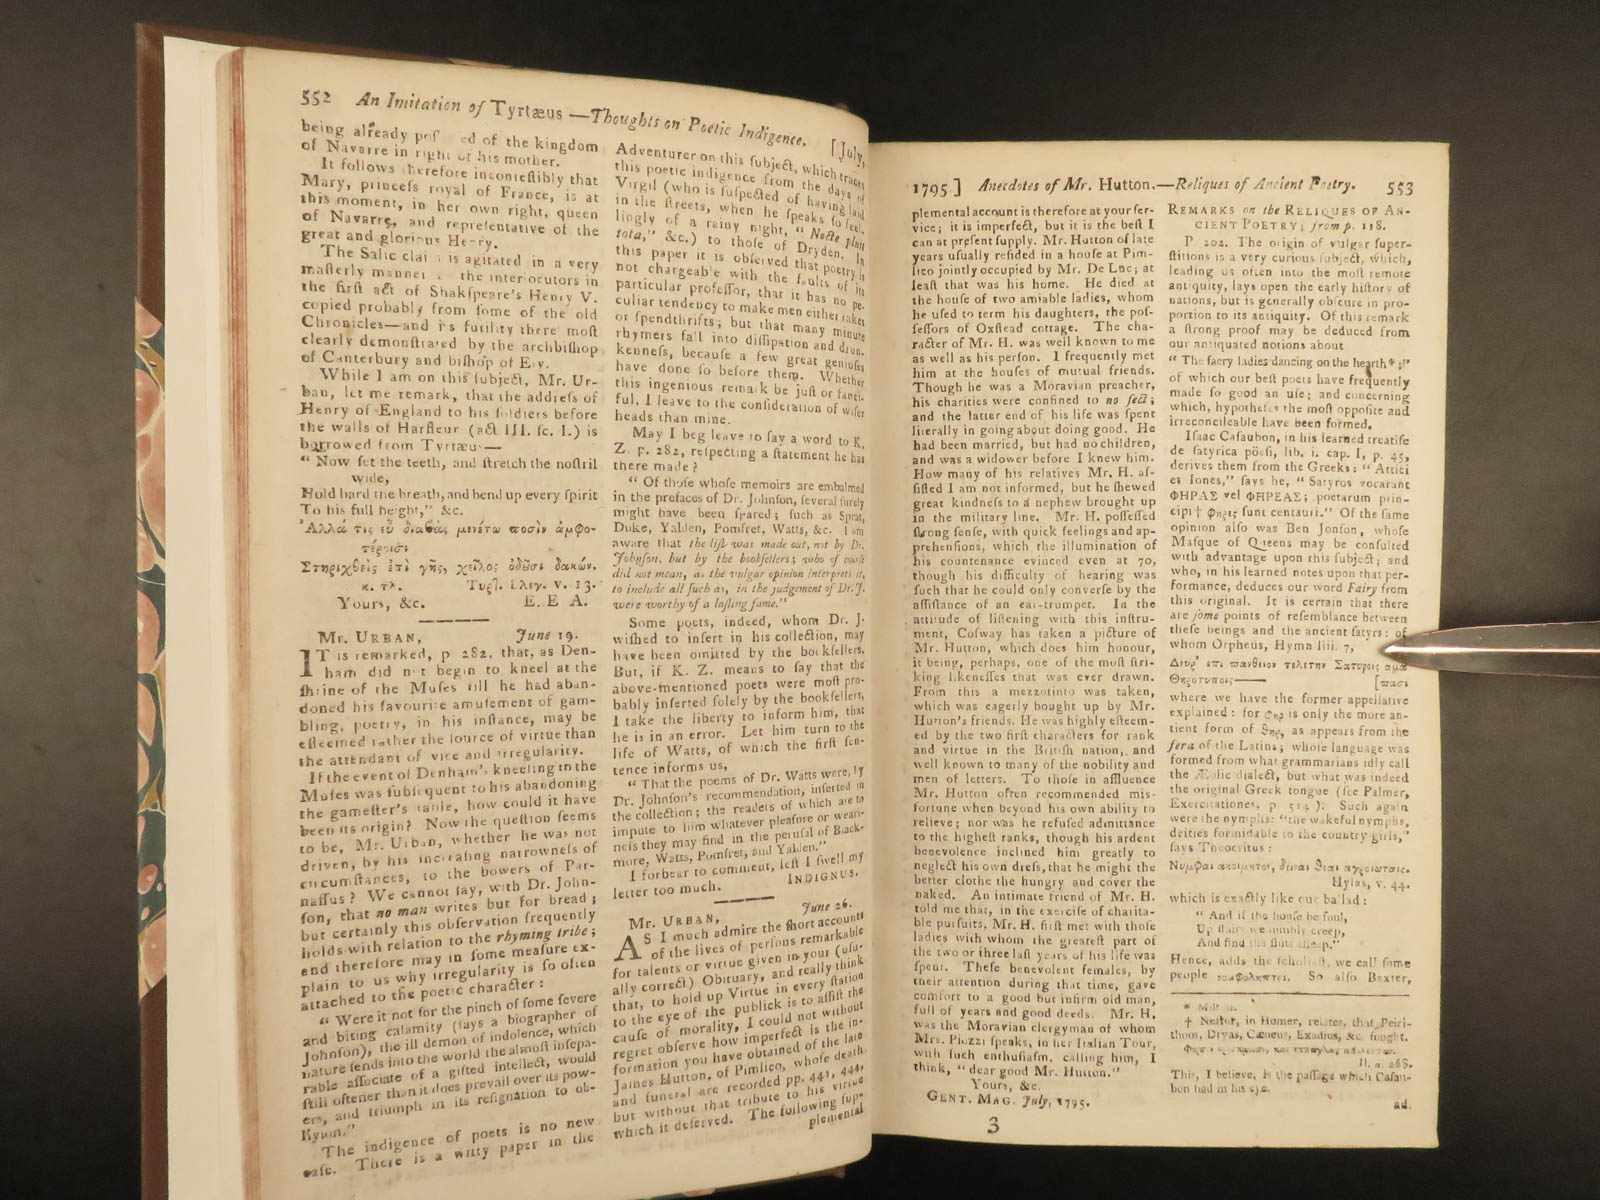 552 An Imitation of Tyrtæus —Thoughts on Poetic Indigence. [July,
being already poſ ed of the kingdom
of Navarre in right of his mother.
It follows therefore inconteſtibly that
Mary, princeſs royal of France, is at
this moment, in her own right, queen
of Navarre, and repreſentative of the
great and glorious Henry.
The Salic clai is agitated in a very
maſterly manner the interlocutors in
the firſt act of Shakſpeare's Henry V.
copied probably from ſome of the old
Chronicles—and its futility there moſt
clearly demonſtrated by the archbiſhop
of Canterbury and biſhop of Ely.
While I am on this ſubject, Mr. Ur-
ban, let me remark, that the addreſs of
Henry of England to his ſoldiers before
the walls of Harfleur (act III. ſc. I.) is
borrowed from Tyrtæus—
“ Now ſet the teeth, and ſtretch the noſtril
wide,
Hold hard the breath, and bend up every ſpirit
To his full height,” &c.
Ἀλλά τις εὖ διαβὰς μενέτω ποσὶν ἀμφο-
τέροισι
Στηριχθεὶς ἐπὶ γῆς, χεῖλος ὀδοῦσι δακών.
κ. τλ. Τυρτ. Ελεγ. v. 13.
Yours, &c. E. E A.
Mr. URBAN, June 19.
IT is remarked, p 282, that, as Den-
ham did not begin to kneel at the
ſhrine of the Muſes till he had aban-
doned his favourite amuſement of gam-
bling, poetry, in his inſtance, may be
eſteemed rather the ſource of virtue than
the attendant of vice and irregularity.
If the event of Denham's kneeling to the
Muſes was ſubſequent to his abandoning
the gameſter's table, how could it have
been its origin? Now the queſtion ſeems
to be, Mr. Urban, whether he was not
driven, by his increaſing narrowneſs of
circumſtances, to the bowers of Par-
naſſus? We cannot ſay, with Dr. John-
ſon, that no man writes but for bread;
but certainly this obſervation frequently
holds with relation to the rhyming tribe;
and therefore may in ſome meaſure ex-
plain to us why irregularity is ſo often
attached to the poetic character:
“ Were it not for the pinch of ſome ſevere
and biting calamity (ſays a biographer of
Johnſon), the ill demon of indolence, which
nature ſends into the world the almoſt inſepa-
rable aſſociate of a gifted intellect, would
ſtill oftener than it does prevail over its pow-
ers, and triumph in its reſignation to ob-
livion.”
The indigence of poets is no new
caſe. There is a witty paper in the
Adventurer on this ſubject, which traces
this poetic indigence from the days of
Virgil (who is ſuſpected of having laid
in the ſtreets, when he ſpeaks ſo feel-
lingly of a rainy night, “ Nocte pluit
tota,” &c.) to thoſe of Dryden. In
this paper it is obſerved that poetry is
not chargeable with the faults of its
particular profeſſor, that it has no pe-
culiar tendency to make men either rakes
or ſpendthrifts; but that many minute
rhymers fall into diſſipation and drun-
kenneſs, becauſe a few great geniuſes
have done ſo before them. Whether
this ingenious remark be juſt or fanci-
ful, I leave to the conſideration of wiſer
heads than mine.
May I beg leave to ſay a word to K.
Z. p. 282, reſpecting a ſtatement he has
there made?
“ Of thoſe whoſe memoirs are embalmed
in the prefaces of Dr. Johnſon, ſeveral ſurely
might have been ſpared; ſuch as Sprat,
Duke, Yalden, Pomfret, Watts, &c. I am
aware that the liſt was made out, not by Dr.
Johnſon, but by the bookſellers; who of courſe
did not mean, as the vulgar opinion interprets it,
to include all ſuch as, in the judgement of Dr. J.
were worthy of a laſting fame.”
Some poets, indeed, whom Dr. J.
wiſhed to inſert in his collection, may
have been omitted by the bookſellers.
But, if K. Z. means to ſay that the
above-mentioned poets were moſt pro-
bably inſerted ſolely by the bookſellers,
I take the liberty to inform him, that
he is in an error. Let him turn to the
life of Watts, of which the firſt ſen-
tence informs us,
“ That the poems of Dr. Watts were, by
Dr. Johnſon's recommendation, inſerted in
the collection; the readers of which are to
impute to him whatever pleaſure or wean-
neſs they may find in the peruſal of Black-
more, Watts, Pomfret, and Yalden.”
I forbear to comment, leſt I ſwell my
letter too much. INDIGNUS.
Mr. URBAN, June 26.
AS I much admire the ſhort accounts
of the lives of perſons remarkable
for talents or virtue given in your (uſu-
ally correct) Obituary, and really think
that, to hold up Virtue in every ſtation
to the eye of the publick is to aſſiſt the
cauſe of morality, I could not without
regret obſerve how imperfect is the in-
formation you have obtained of the late
James Hutton, of Pimlico, whoſe death
and funeral are recorded pp. 441, 444,
but without that tribute to his virtue
which it deſerved. The following ſup-
plemental
1795.] Anecdotes of Mr. Hutton.—Reliques of Ancient Poetry. 553
plemental account is therefore at your ſer-
vice; it is imperfect, but it is the beſt I
can at preſent ſupply. Mr. Hutton of late
years uſually reſided in a houſe at Pim-
lico jointly occupied by Mr. De Luc; at
leaſt that was his home. He died at
the houſe of two amiable ladies, whom
he uſed to term his daughters, the poſ-
ſeſſors of Oxſtead cottage. The cha-
racter of Mr. H. was well known to me
as well as his perſon. I frequently met
him at the houſes of mutual friends.
Though he was a Moravian preacher,
his charities were confined to no ſect;
and the latter end of his life was ſpent
literally in going about doing good. He
had been married, but had no children,
and was a widower before I knew him.
How many of his relatives Mr. H. aſ-
ſiſted I am not informed, but he ſhewed
great kindneſs to a nephew brought up
in the military line. Mr. H. poſſeſſed
ſtrong ſenſe, with quick feelings and ap-
prehenſions, which the illumination of
his countenance evinced even at 70,
though his difficulty of hearing was
ſuch that he could only converſe by the
aſſiſtance of an ear-trumpet. In the
attitude of liſtening with this inſtru-
ment, Coſway has taken a picture of
Mr. Hutton, which does him honour,
it being, perhaps, one of the moſt ſtri-
king likeneſſes that was ever drawn.
From this a mezzotinto was taken,
which was eagerly bought up by Mr.
Hutton's friends. He was highly eſteem-
ed by the two firſt characters for rank
and virtue in the Britiſh nation, and
well known to many of the nobility and
men of letters. To thoſe in affluence
Mr. Hutton often recommended miſ-
fortune when beyond his own ability to
relieve; nor was he refuſed admittance
to the higheſt ranks, though his ardent
benevolence inclined him greatly to
neglect his own dreſs, that he might the
better clothe the hungry and cover the
naked. An intimate friend of Mr. H.
told me that, in the exerciſe of charita-
ble purſuits, Mr. H. firſt met with thoſe
ladies with whom the greateſt part of
the two or three laſt years of his life was
ſpent. Theſe benevolent females, by
their attention during that time, gave
comfort to a good but infirm old man,
full of years and good deeds. Mr. H.
was the Moravian clergyman of whom
Mrs. Piozzi ſpeaks, in her Italian Tour,
with ſuch enthuſiaſm, calling him, I
think, “ dear good Mr. Hutton.”
Yours, &c.
GENT. MAG. July, 1795.
3
REMARKS on the RELIQUES OF AN-
CIENT POETRY; from p. 118.
P 202. The origin of vulgar ſuper-
ſtitions is a very curious ſubject, which,
leading us often into the moſt remote
antiquity, lays open the early hiſtory of
nations, but is generally obſcure in pro-
portion to its antiquity. Of this remark
a ſtrong proof may be deduced from
our antiquated notions about
“ The faery ladies dancing on the hearth*;”
of which our beſt poets have frequently
made ſo good an uſe; and concerning
which, hypotheſes the moſt oppoſite and
irreconcileable have been formed.
Iſaac Caſaubon, in his learned treatiſe
de ſatyrica pöeſi, lib. i. cap. I, p. 45,
derives them from the Greeks: “ Attici
et Iones,” ſays he, “ Satyros vocarant
ΦΗΡΑΣ vel ΦΗΡΕΑΣ; poetarum prin-
cipi † φηρες ſunt centauri.” Of the ſame
opinion alſo was Ben Jonſon, whoſe
Maſque of Queens may be conſulted
with advantage upon this ſubject; and
who, in his learned notes upon that per-
formance, deduces our word Fairy from
this original. It is certain that there
are ſome points of reſemblance between
theſe beings and the ancient ſatyrs: of
whom Orpheus, Hymn liii. 7,
Δευρ' επι πανθειον τελετην Σατυροις αμα
Θηροτυποις—— [πασι
where we have the former appellative
explained: for φηρ is only the more an-
tient form of θηρ, as appears from the
fera of the Latins; whoſe language was
formed from what grammarians idly call
the Æolic dialect, but what was indeed
the original Greek tongue (ſee Palmer,
Exercitationes, p. 514). Such again
were the nymphs: “the wakeful nymphs,
deities formidable to the country girls,”
ſays Theocritus:
Νυμφαι ακοιμητοι, δειναι θεαι αγροιωταις.
Hylas, v. 44.
which is exactly like our ballad:
“ And if the houſe be foul,
Up ſtairs we nimbly creep,
And find the ſluts aſleep.”
Hence, adds the ſcholiaſt, we call ſome
people νυμφοληπτοι. So alſo Baxter,
* Milton.
† Neſtor, in Homer, relates, that Peiri-
thous, Dryas, Cæneus, Exadius, &c. fought.
Il. α. 268.
This, I believe, is the paſſage which Caſau-
bon had in his eye.
ad.